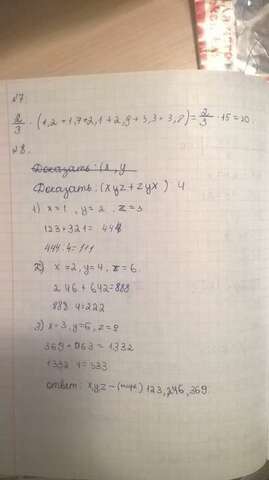 №7.
2/3 · (1,2 + 1,7 + 2,1 + 2,9 + 3,3 + 3,8) = 2/3 · 15 = 10.
№8.
Доказать: (x, y
Доказать: (xyz + zyx) 4
1) x = 1, y = 2 z = 3
123 + 321 = 444
444:4 = 111
2) x = 2, y = 4, z = 6.
246 + 642 = 888
888:4 = 222
3) x = 3, y = 6, z = 9
369 + 963 = 1332
1332:4 = 333
ответ: xyz – 123, 246, 369.